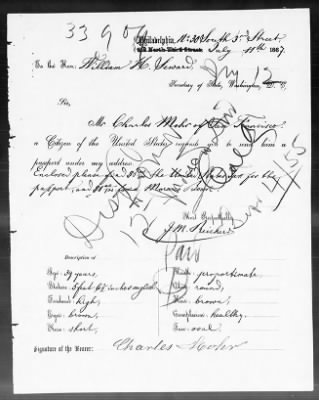 33909
Philadelphia, No. 30 South 3rd Street
July 11th 1867
To the Hon: William H. Seward
Secretary of State, Washington, D. C.
July 12
Sir,
Mr Charles Mohr of San Francisco
a Citizen of the United States request you to send him a
passport under my address.
Enclosed please find $5 the United States Tax for the
passport, and
Most Respectfully
J. M. Reichard
Description of
Age: 39 years.
Stature: 5 feet 6½ inches english
Forehead: high,
Eyes: brown,
Nose: short,
Mouth: proportionate
Chin: round,
Hair: brown,
Complexion: healthy
Face: oval.
Signature of the Bearer: Charles Mohr